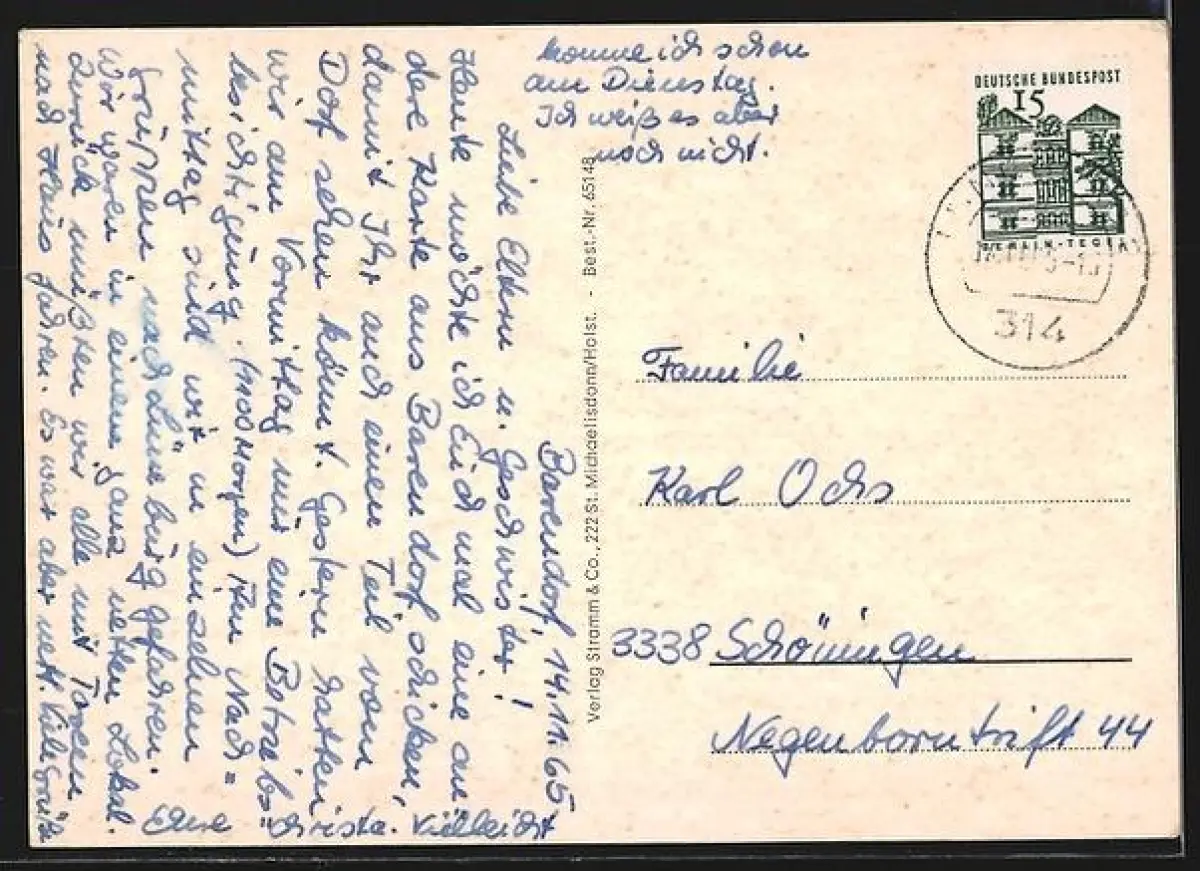 Barendorf, 14.11.65
Liebe Eltern u. Geschwister!
Heute möchte ich Euch mal eine an
dere Karte aus Barendorf schicken,
damit Ihr auch einen Teil vom
Dorf sehen könnt. Gestern hatten
wir am Vormittag mit eine Betriebs=
besichtigung. (1100 Morgen) Am Nach=
mittag sind wir in einzelnen
Gruppen nach Lüneburg gefahren.
Wir waren in einem ganz netten Lokal.
Zurück mußten wir alle mit Taxen
nach Haus fahren. Es war aber nett. Viele Grüße
Eure Christa. Vielleicht
komme ich schon
am Dienstag.
Ich weiß es aber
noch nicht.
Verlag Stramm & Co., 222 St. Michaelisdonn/Holst. - Best.-Nr. 65148
DEUTSCHE BUNDESPOST
15
BERLIN-TEGEL
314
Familie
Karl Ochs
3338 Schöningen
Negenborntrift 44